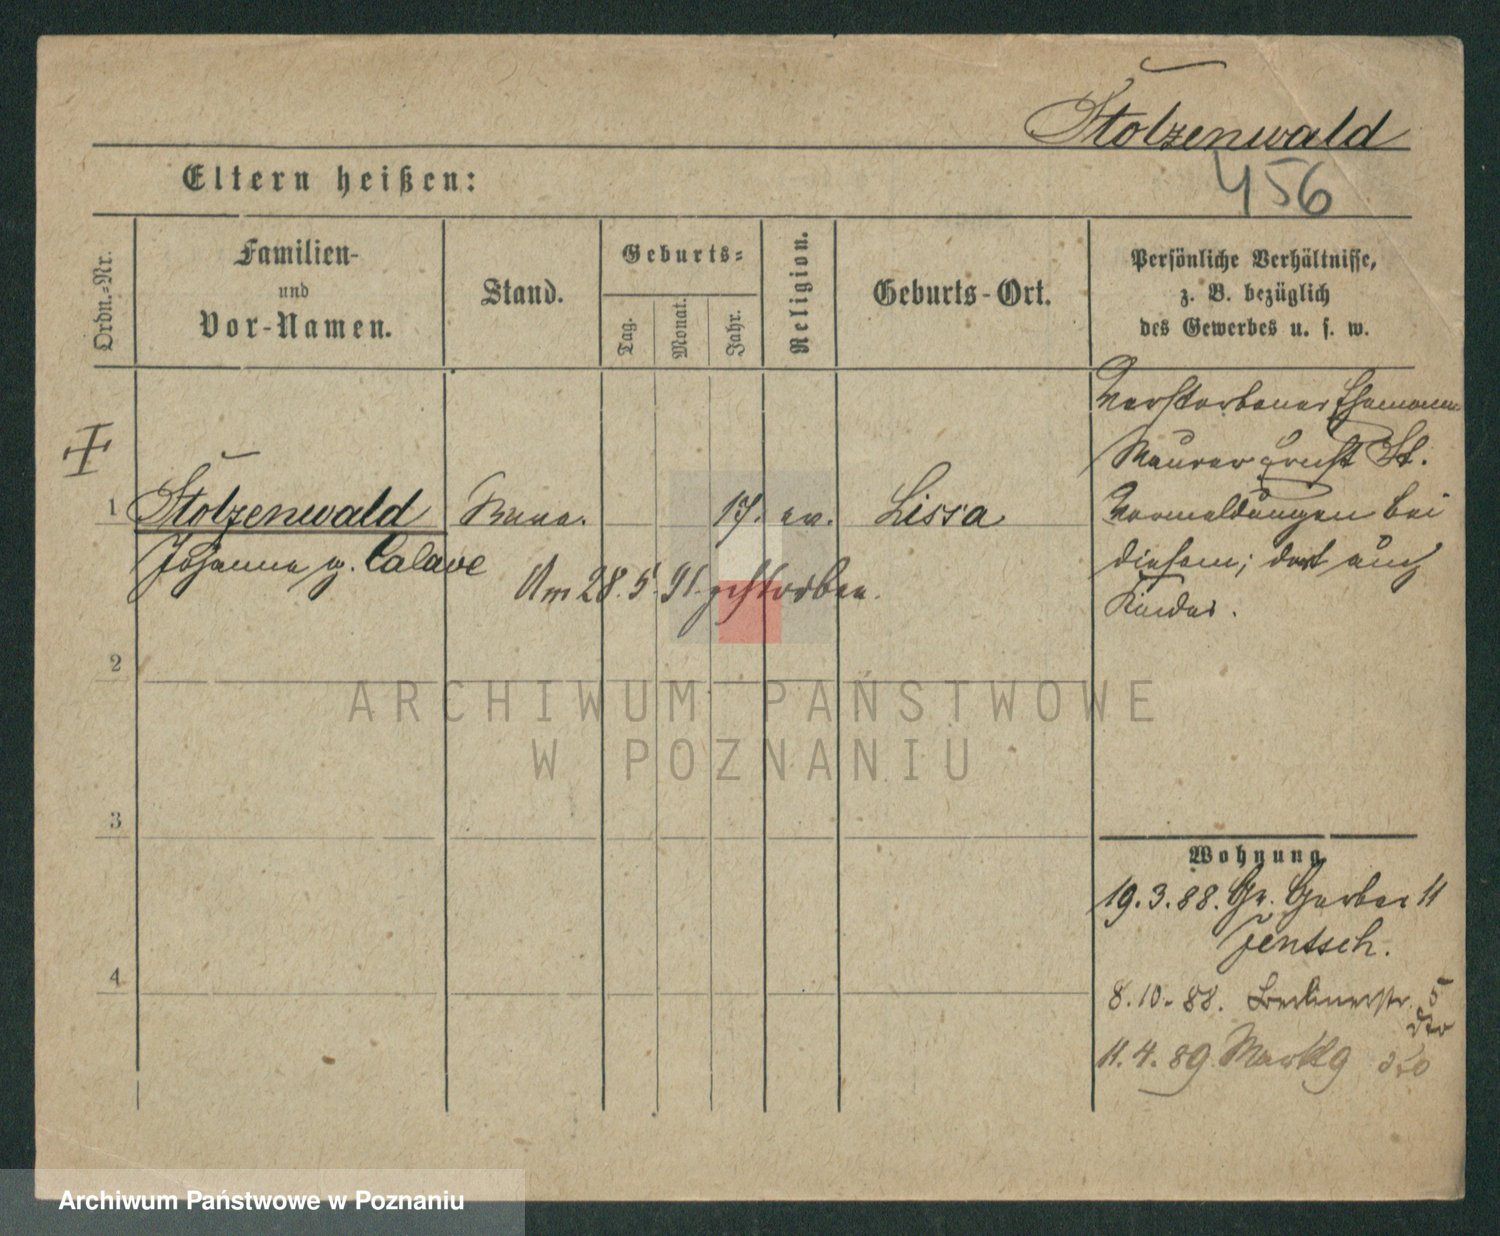 Stolzenwald
456
Eltern heißen:
Ordn.-Nr.
Familien-
und
Vor-Namen.
Stand.
Geburts-
Tag.
Monat.
Jahr.
Religion.
Geburts-Ort.
Persönliche Verhältnisse,
z. B. bezüglich
des Gewerbes u. s. w.
Verstorbener Ehemann
Maurer Ernst St.
Vermeldungen bei
diesem; dort auch
Kinder.
1 Stolzenwald Wwe. 17. ev. Lissa
Johanna g. Calave
Am 28. 5. 91. gestorben.
2
3
4
Wohnung
19.3.88. Gr. Gerber 11
Jentsch.
8.10.88. Berlinerstr. 5
dto
11.4.89. Markt 9 dto
ARCHIWUM PAŃSTWOWE
W POZNANIU
Archiwum Państwowe w Poznaniu